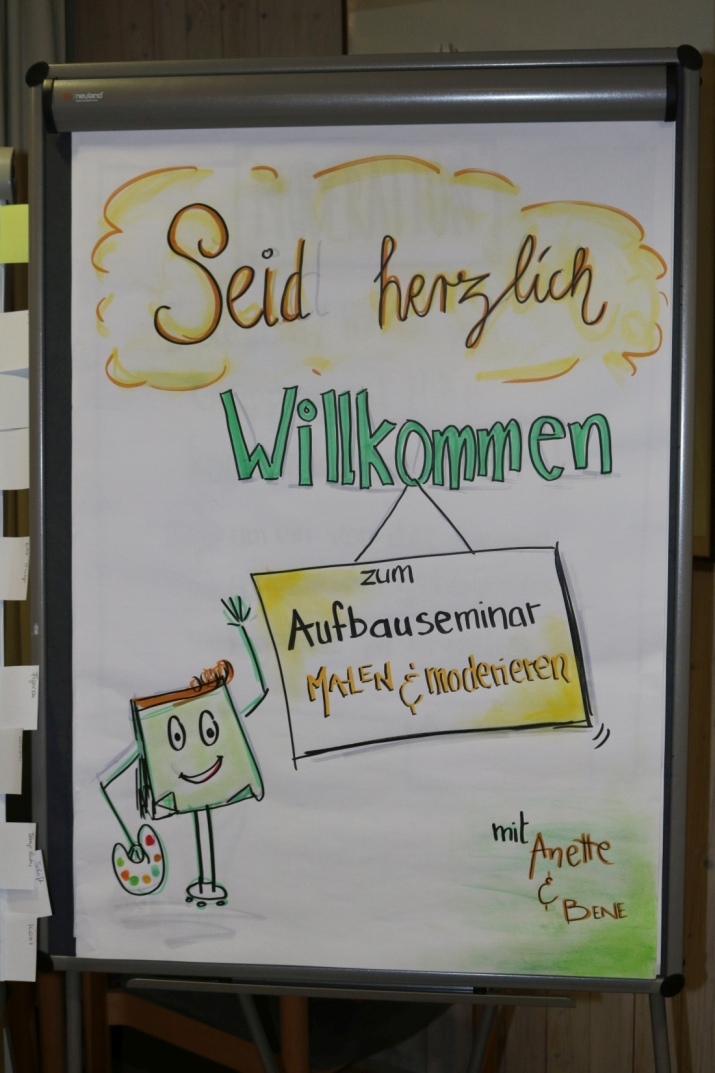 neuland
Seid herzlich
Willkommen
zum
Aufbauseminar
MALEN & moderieren
mit
Anette
&
BENE